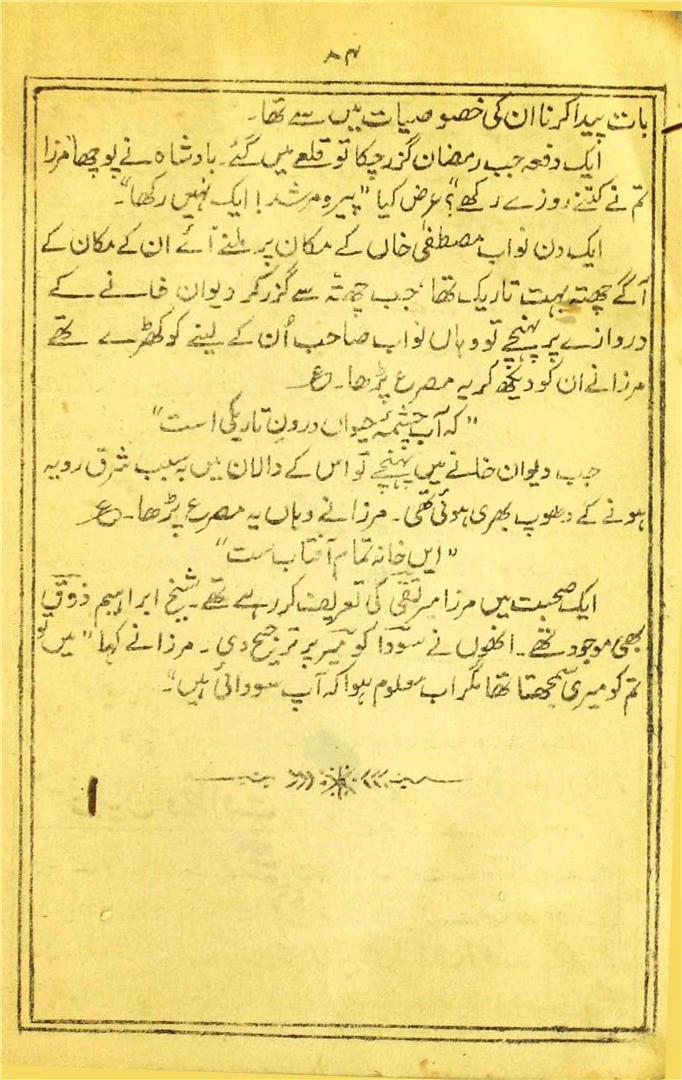 ۸۴
بات پیدا کرنا ان کی خصوصیات میں سے تھا۔
ایک دفعہ جب رمضان گزر چکا تو قلعے میں گئے۔ بادشاہ نے پوچھا "مرزا
تم نے کتنے روزے رکھے"؟ عرض کیا "پیر و مرشد! ایک نہیں رکھا"۔
ایک دن نواب مصطفیٰ خاں کے مکان پر ملنے آئے ان کے مکان کے
آگے چھتہ بہت تاریک تھا جب چھتہ سے گزر کر دیوان خانے کے
دروازے پر پہنچے تو وہاں نواب صاحب اُن کے لینے کو کھڑے تھے
مرزا نے ان کو دیکھ کر یہ مصرع پڑھا۔ ع
"کہ آبِ چشمۂ حیواں درونِ تاریکی است"
جب دیوان خانے میں پہنچے تو اس کے دالان میں بہ سبب شرق رویہ
ہونے کے دھوپ بھری ہوئی تھی۔ مرزا نے وہاں یہ مصرع پڑھا۔ ع
"ایں خانہ تمام آفتاب ست"
ایک صحبت میں مرزا میر تقی کی تعریف کر رہے تھے۔ شیخ ابراہیم ذوق
بھی موجود تھے۔ انھوں نے سودا کو میر پر ترجیح دی۔ مرزا نے کہا "میں تو
تم کو میری سمجھتا تھا مگر اب معلوم ہوا کہ آپ سودائی ہیں"۔